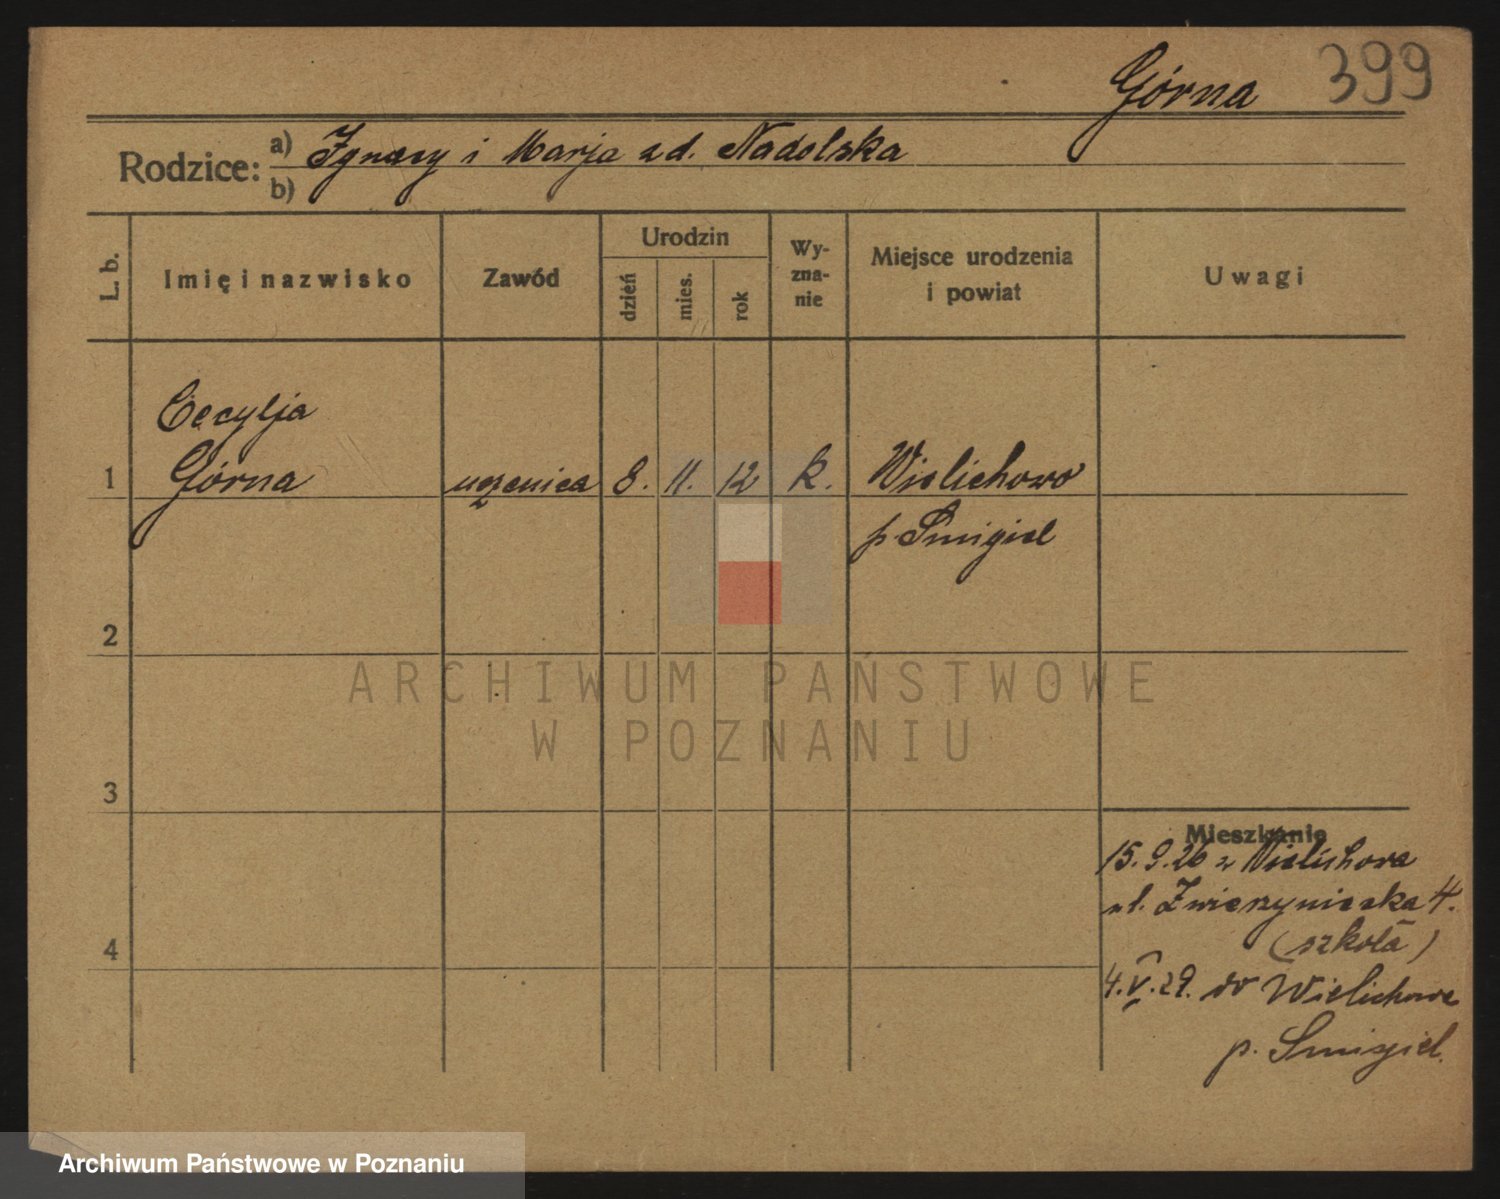 Górna 399
Rodzice: a) Ignacy i Marja zd. Nadolska
b)
L. b.
Imię i nazwisko
Zawód
Urodzin
dzień
mies.
rok
Wy-
zna-
nie
Miejsce urodzenia
i powiat
Uwagi
Cecylja
1 Górna uczenica 8. 11. 12 k. Wielichowo
p. Śmigiel
2
ARCHIWUM PAŃSTWOWE
W POZNANIU
3
Mieszkanie
15.9.26 z Wielichowa
ul. Zwierzyniecka 4.
(szkoła)
4
4.V.29. do Wielichowa
p. Śmigiel.
Archiwum Państwowe w Poznaniu